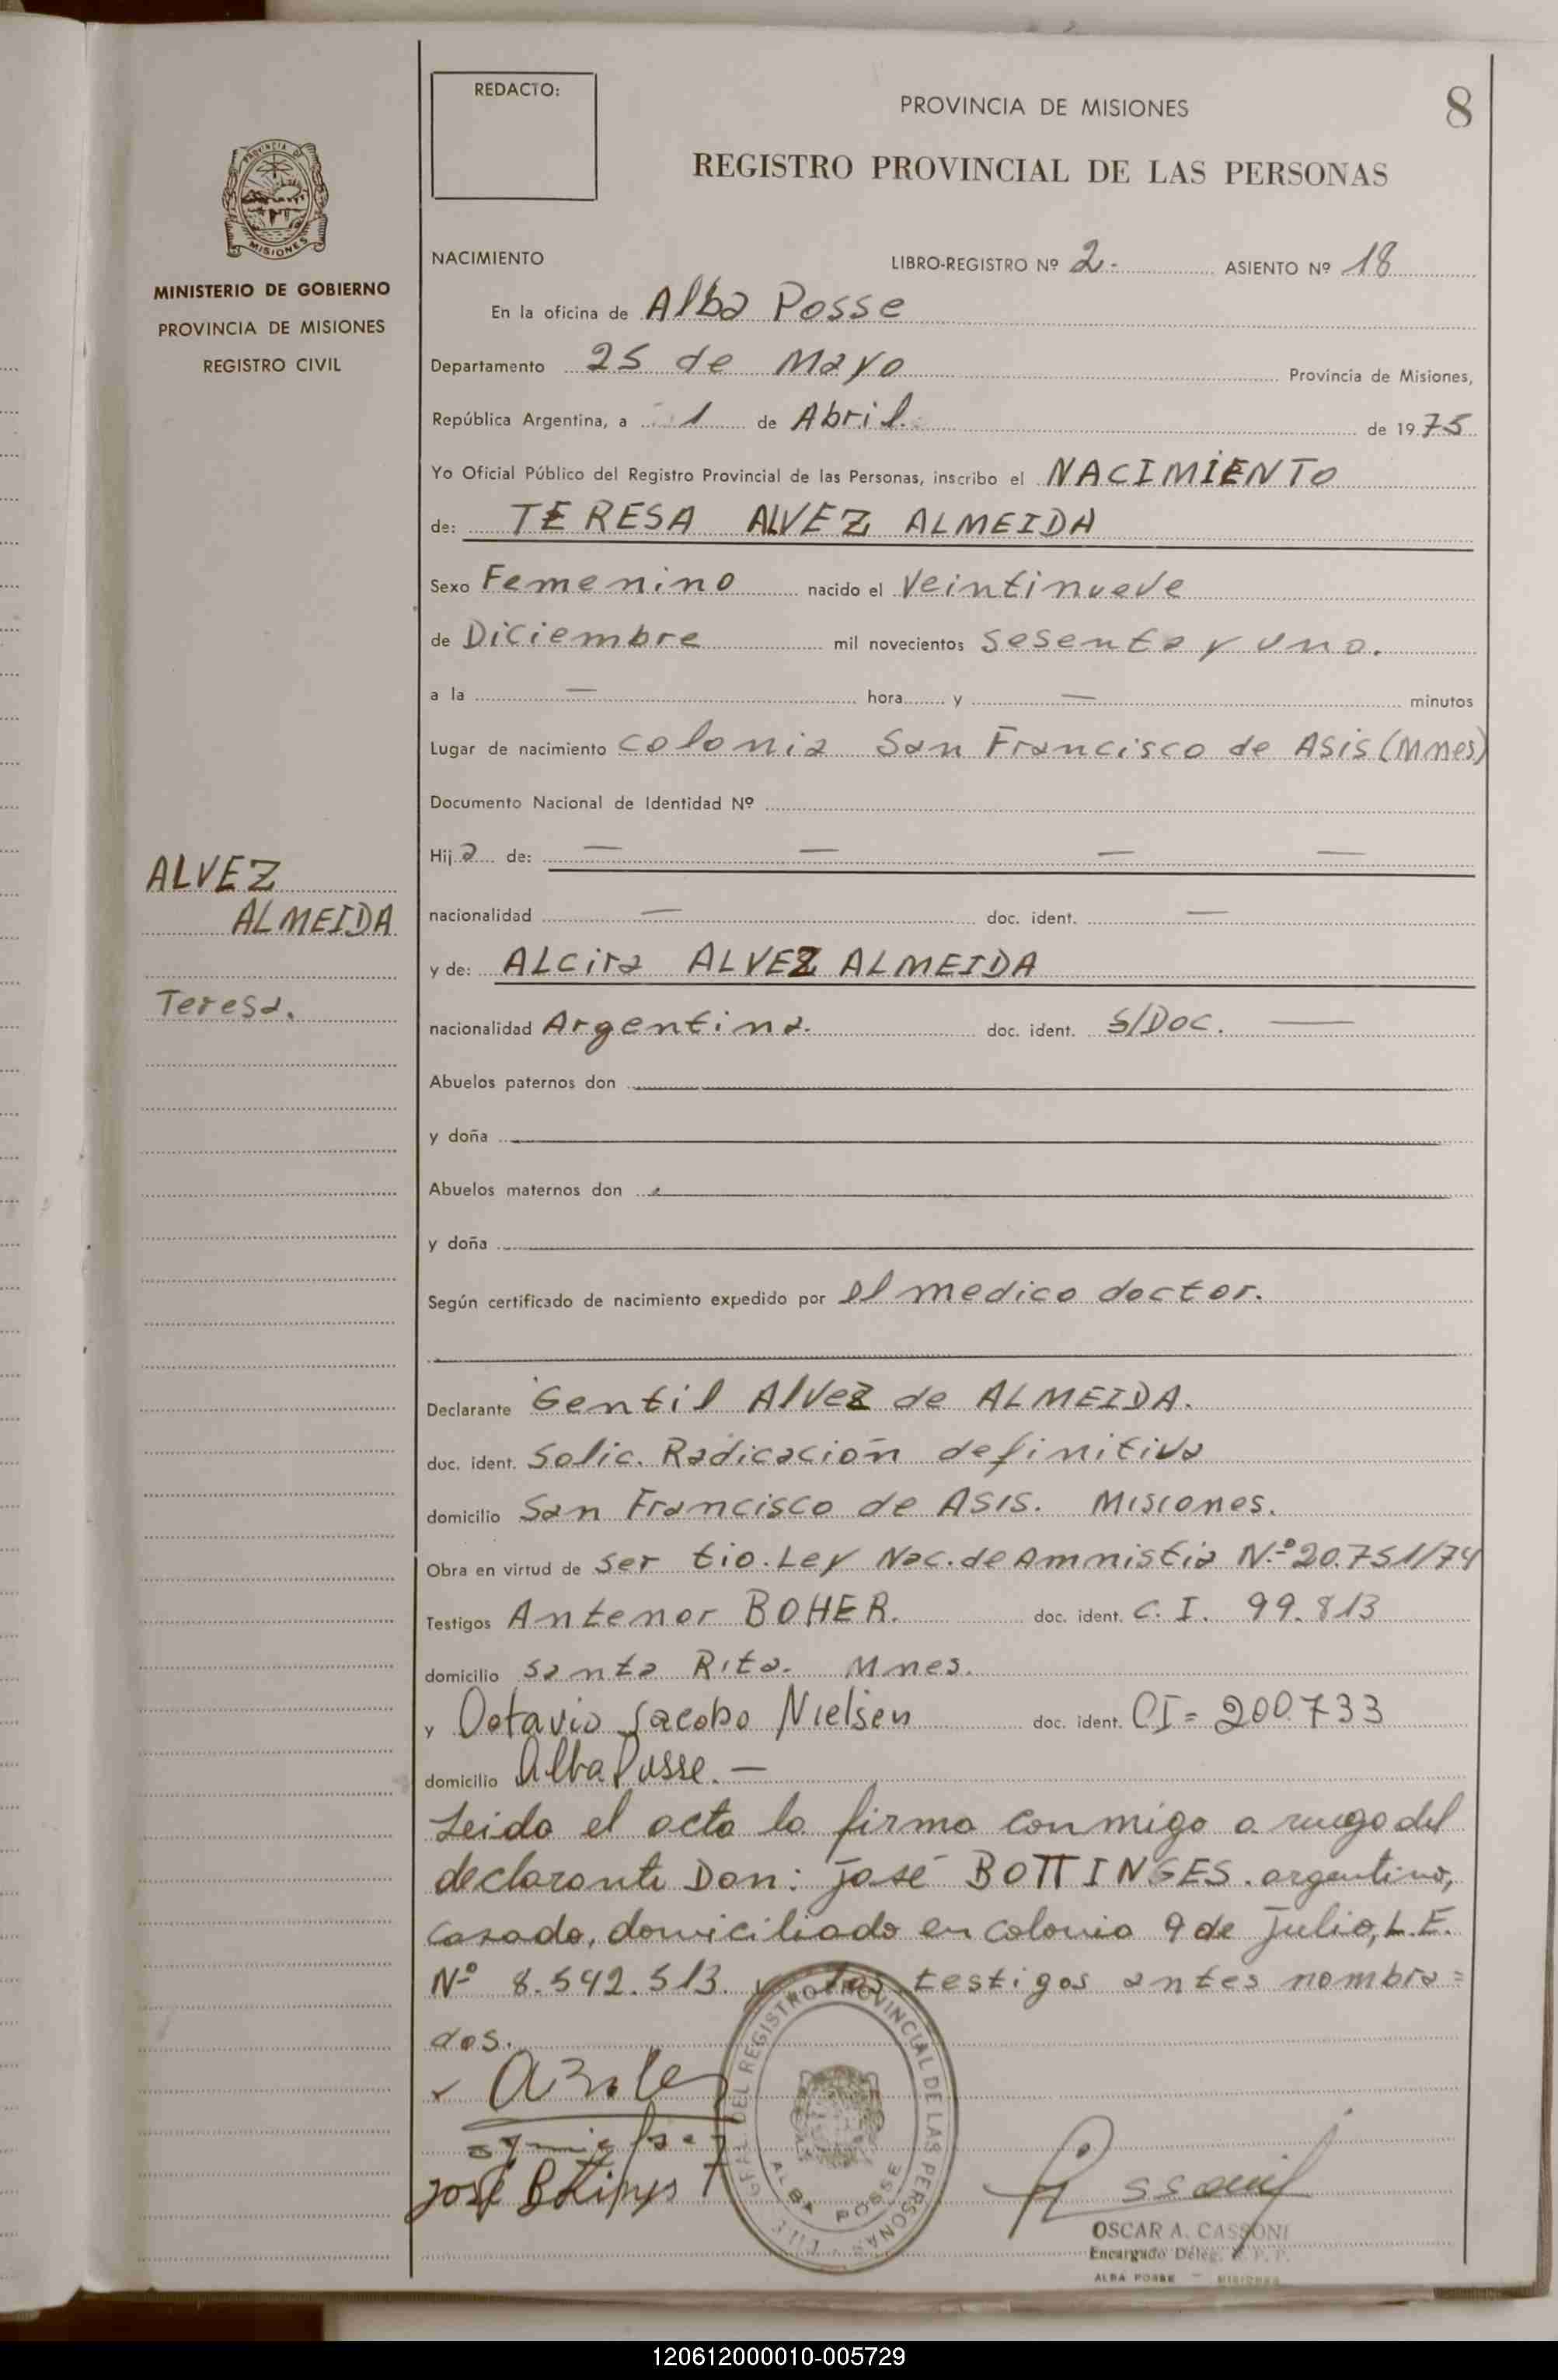 REDACTO:
PROVINCIA DE MISIONES
8
REGISTRO PROVINCIAL DE LAS PERSONAS
PROVINCIA DE
MISIONES
MINISTERIO DE GOBIERNO
PROVINCIA DE MISIONES
REGISTRO CIVIL
NACIMIENTO LIBRO-REGISTRO Nº 2.- ASIENTO Nº 18
En la oficina de Alba Posse
Departamento 25 de Mayo Provincia de Misiones,
República Argentina, a 1 de Abril. de 1975
Yo Oficial Público del Registro Provincial de las Personas, inscribo el NACIMIENTO
de: TERESA ALVEZ ALMEIDA
Sexo Femenino nacido el Veintinueve
de Diciembre mil novecientos sesenta y uno.
a la — hora y — minutos
Lugar de nacimiento colonia San Francisco de Asis (Mnes)
Documento Nacional de Identidad Nº
Hija de: — — — —
nacionalidad — doc. ident. —
y de: ALcira ALVEZ ALMEIDA
nacionalidad Argentina. doc. ident. S/Doc. —
Abuelos paternos don
y doña
Abuelos maternos don
y doña
Según certificado de nacimiento expedido por el medico doctor.
Declarante Gentil Alvez de ALMEIDA.
doc. ident. Solic. Radicación definitiva
domicilio San Francisco de ASIS. Misiones.
Obra en virtud de ser tio. Ley Nac. de Amnistia N.º 20.751/74
Testigos Antenor BOHER. doc. ident. C. I. 99.813
domicilio Santa Rita. Mnes.
y Octavio Jacobo Nielsen doc. ident. CI = 200.733
domicilio Alba Posse. —
Leida el acta la firma conmigo a ruego del
declarante Don: José BOTTINGES. argentino,
casado, domiciliado en colonia 9 de Julio, L.E.
Nº 8.542.513. y los testigos antes nombra=
dos.
ALVEZ
ALMEIDA
Teresa.
DEL REGISTRO PROVINCIAL DE LAS PERSONAS
ALBA POSSE
OSCAR A. CASSONI
Encargado Deleg. R. P. P.
ALBA POSSE - MISIONES
120612000010-005729